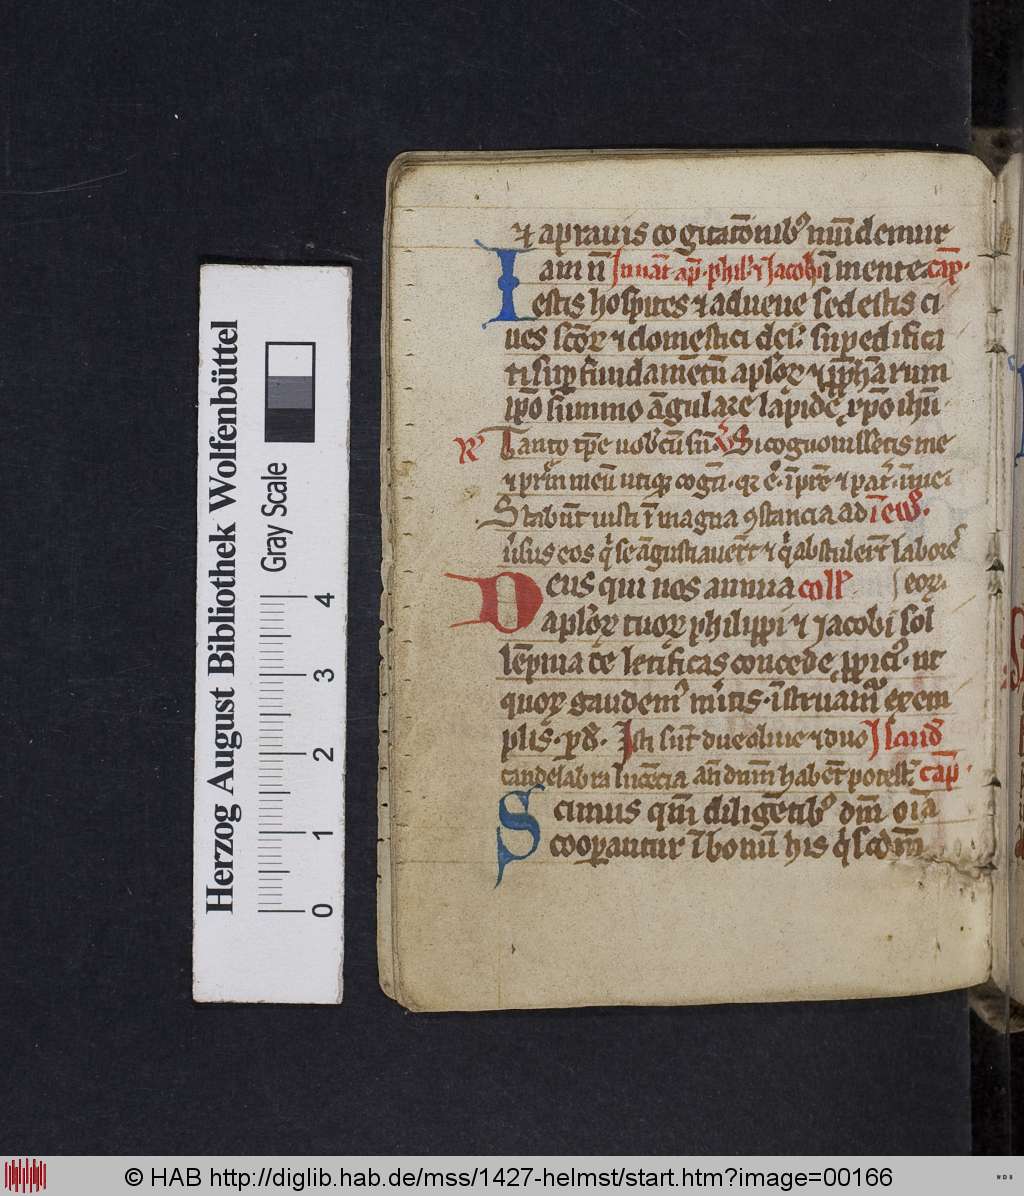 ⁊ aprauis cogitatōnibꝰ mūdemur
Iam n̄ In uāt ap̄ phil ⁊ Jacob ī mente cap̄
estis hospites ⁊ aduene sed estis ci
ues sc̄oꝝ ⁊ domestici dei suꝑedifica
ti suꝑ fundamētū aploꝝ ⁊ ꝓph̄arum
ip̄o summo āgulare lapide xp̄o ihū
℟ Tanto tp̄e uobcū sū ℣ Si cognouissetis me
⁊ pr̄m meū utiqꝫ cogn̄ ī pr̄e ⁊ pat̄ ī me
Stabūt iusti ī magna ꝯstancia ad ī ew̄
ūsus eos q̇ se āgustiauert̄ ⁊ q̇ abstulert̄ labore
Deus qui nos annua coll̄ eoꝝ
aploꝝ tuoꝝ philippi ⁊ Jacobi sol
lēpnia te letificas concede ut
quoꝝ gaudemꝰ ītis īstruamꝰ exem
plis ꝑ Isti sūt due oliue ⁊ duo I laud
candelabra lucēcia an̄ dnm̄ habēt potest cap̄
Scimus qm̄ diligētibꝰ dm̄ oīa
cooꝑantur ī bonū his q̇ scdm̄
Herzog August Bibliothek Wolfenbüttel
Gray Scale
0 1 2 3 4
© HAB http://diglib.hab.de/mss/1427-helmst/start.htm?image=00166